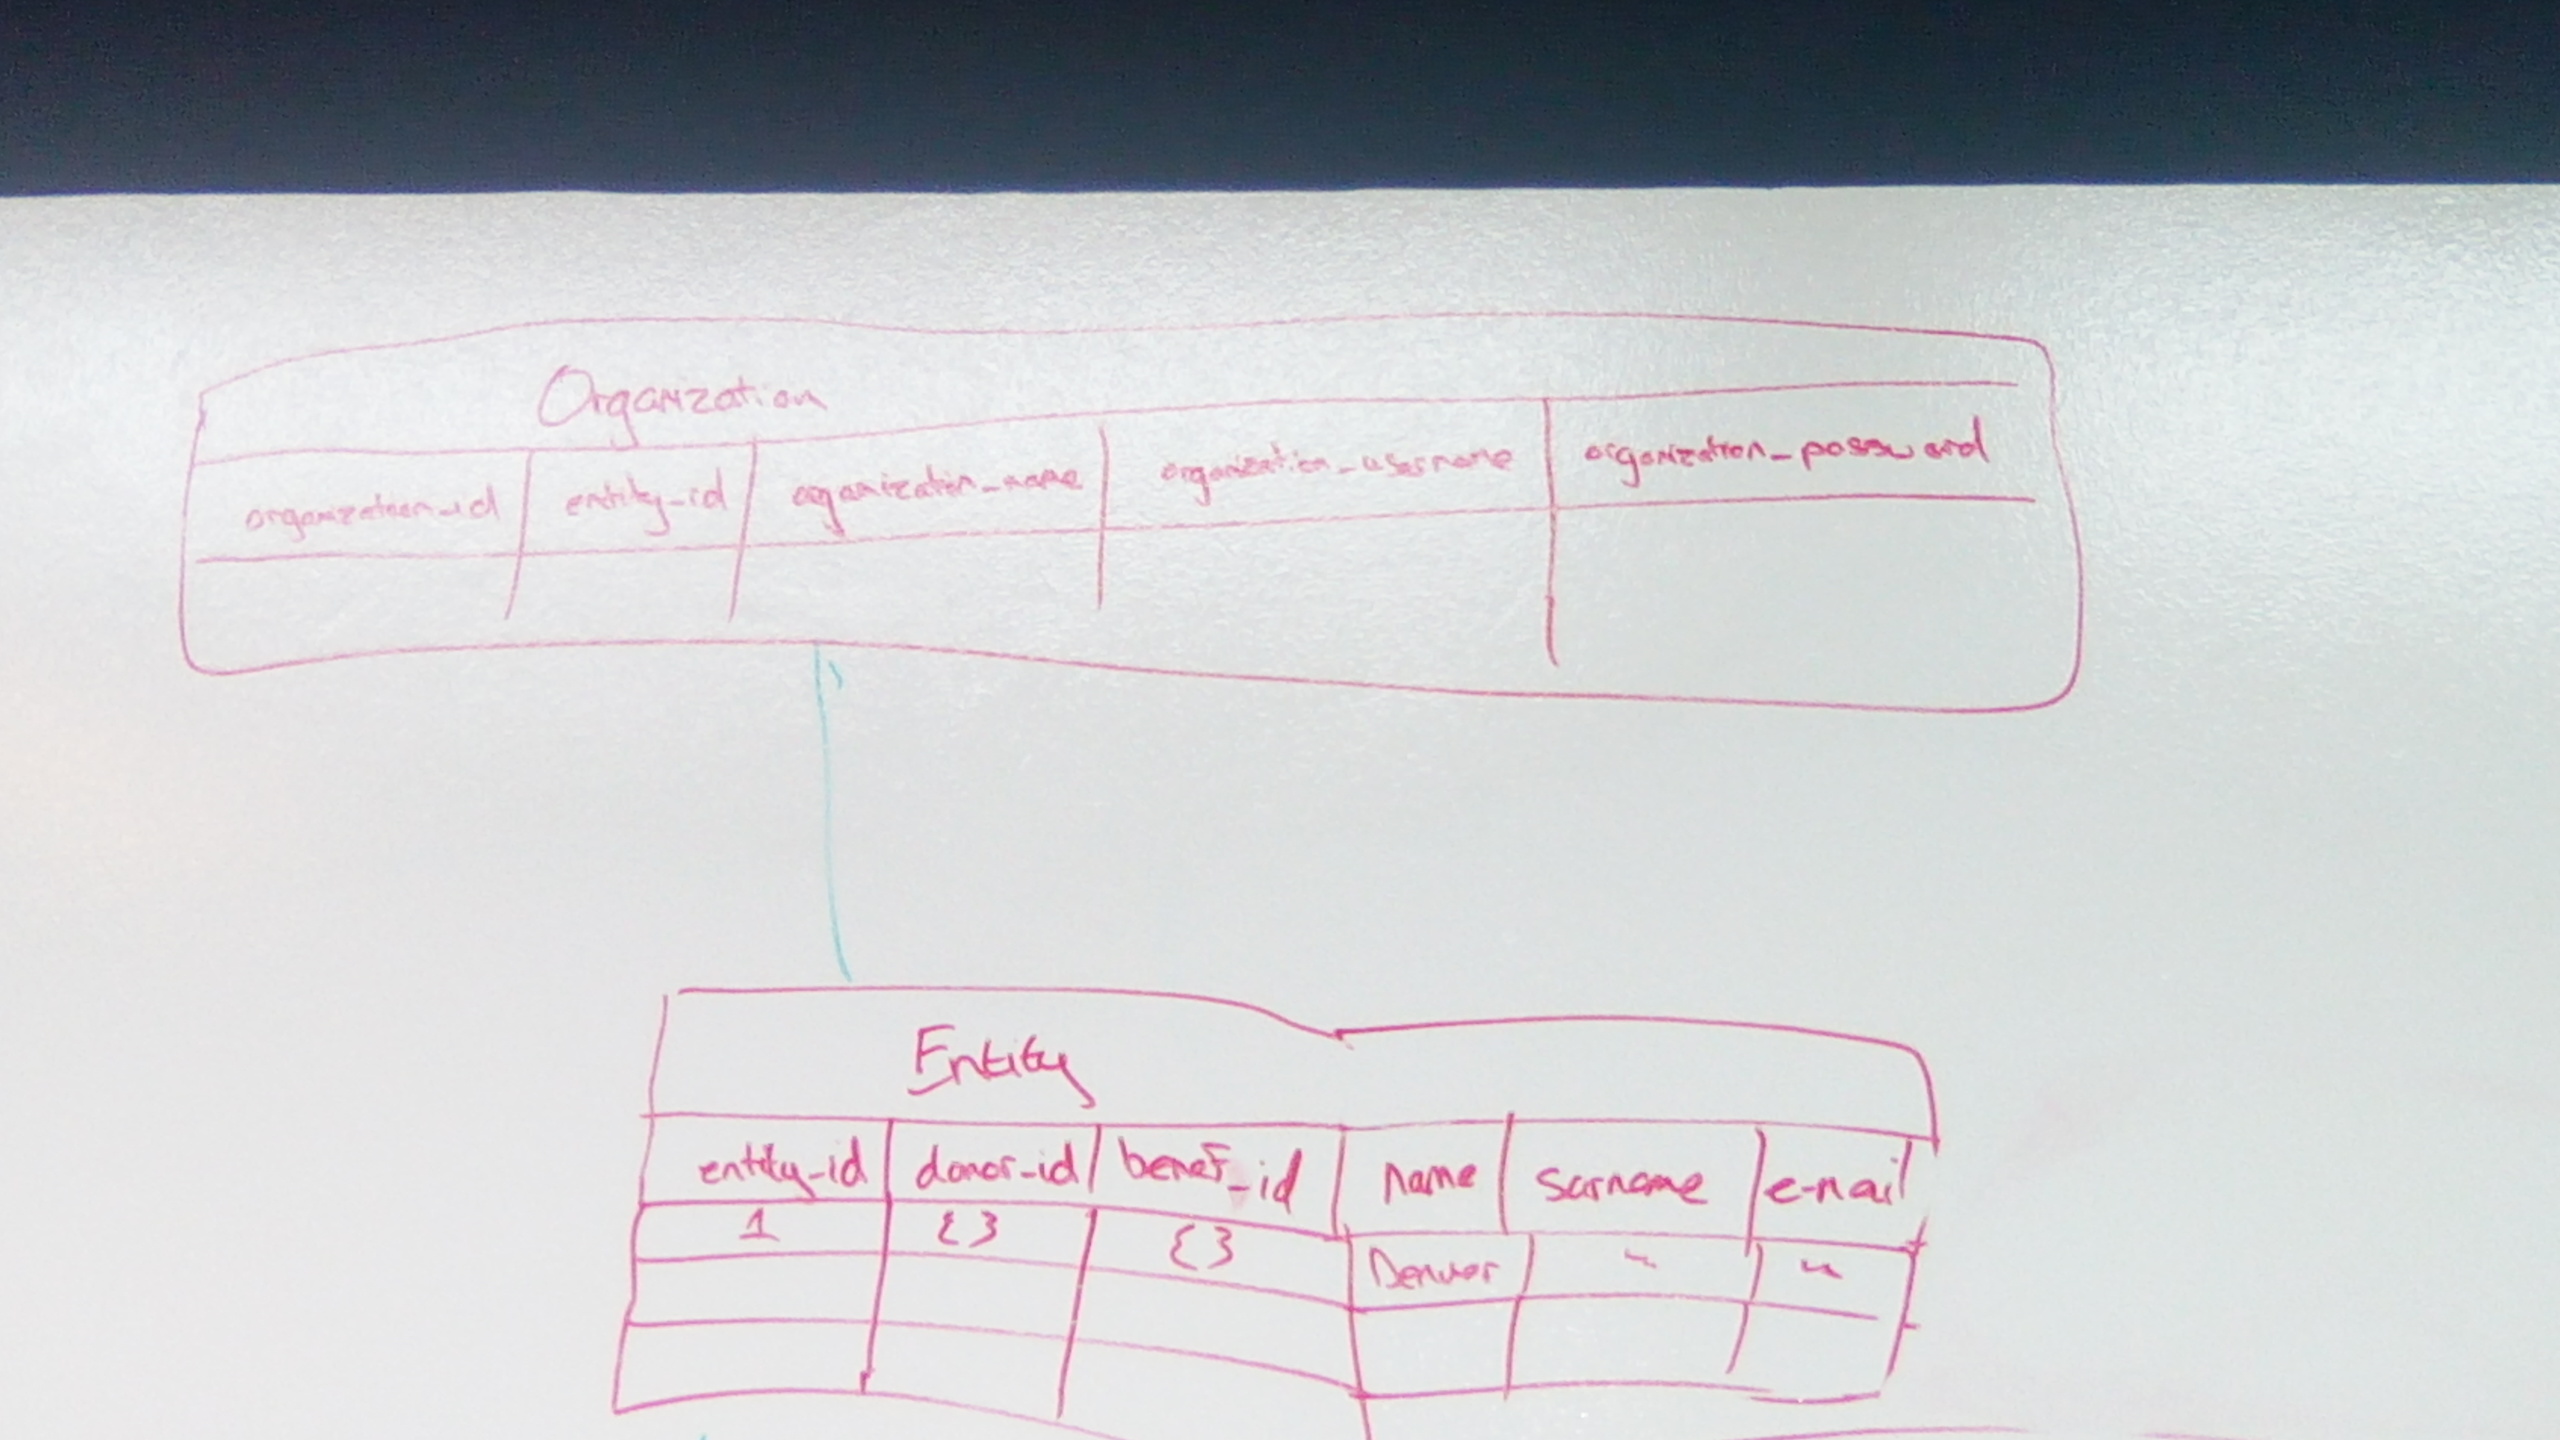 Organization
organization_id entity_id organization_name organization_username organization_password
Entity
entity_id donor_id benef_id name surname e-mail
1 {} {} Denver